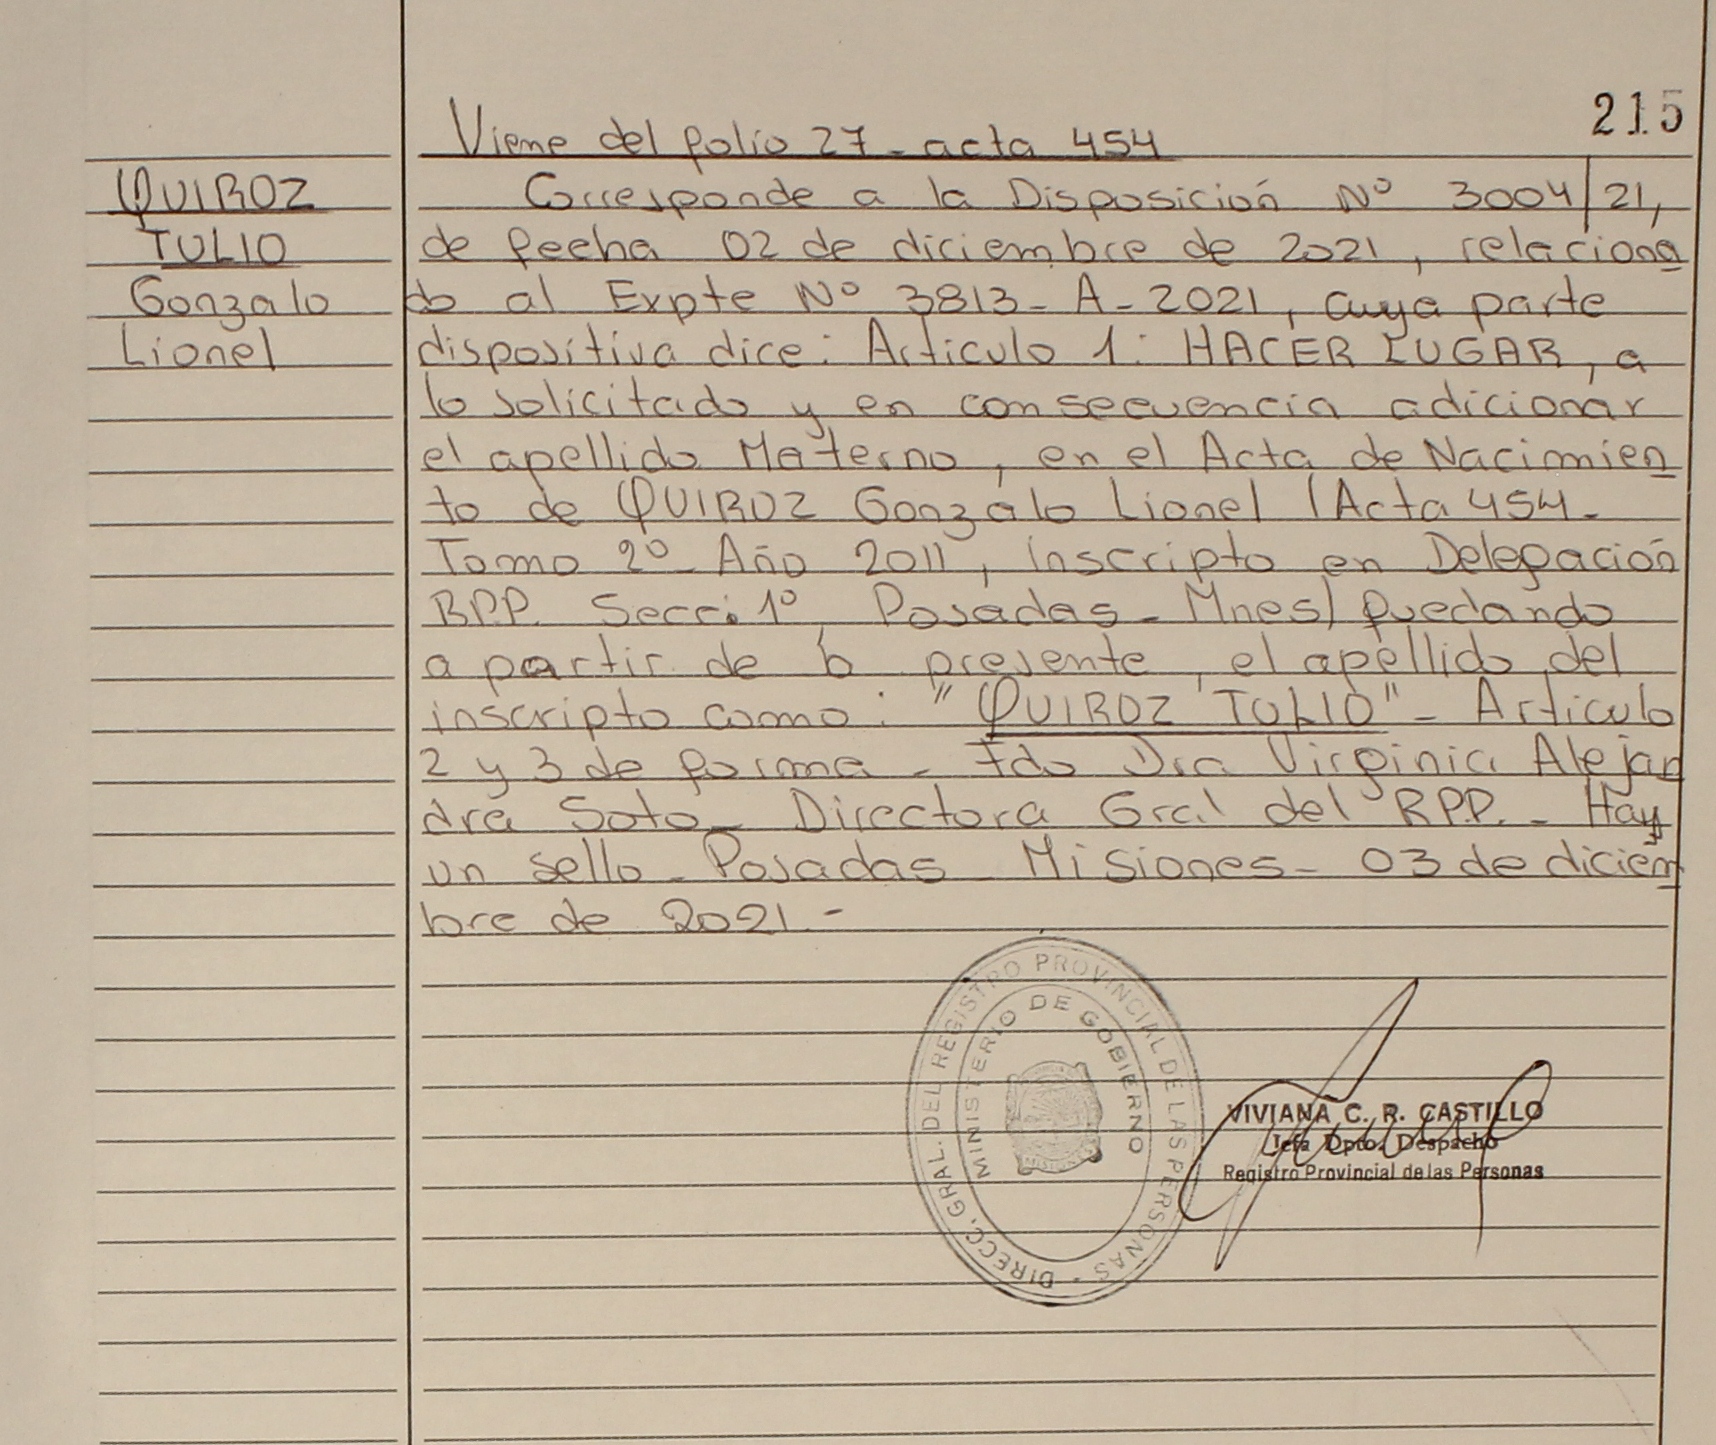 215
Viene del folio 27 - acta 454
QUIROZ
TULIO
Gonzalo
Lionel
Corresponde a la Disposición Nº 3004/21,
de fecha 02 de diciembre de 2021, relaciona
do al Expte Nº 3813-A-2021, cuya parte
dispositiva dice: Articulo 1: HACER LUGAR, a
lo solicitado y en consecuencia adicionar
el apellido Materno, en el Acta de Nacimien
to de QUIROZ Gonzalo Lionel (Acta 454-
Tomo 2º Año 2011, inscripto en Delegación
R.P.P. Secc. 1º Posadas - Mnes) quedando
a partir de lo presente, el apellido del
inscripto como: "QUIROZ TULIO" - Articulo
2 y 3 de forma - Fdo Dra Virginia Alejan
dra Soto - Directora Gral del R.P.P. - Hay
un sello - Posadas Misiones - 03 de diciem
bre de 2021.-
DIRECC. GRAL. DEL REGISTRO PROVINCIAL DE LAS PERSONAS -
MINISTERIO DE GOBIERNO
MISIONES
VIVIANA C. R. CASTILLO
Jefa Dpto. Despacho
Registro Provincial de las Personas